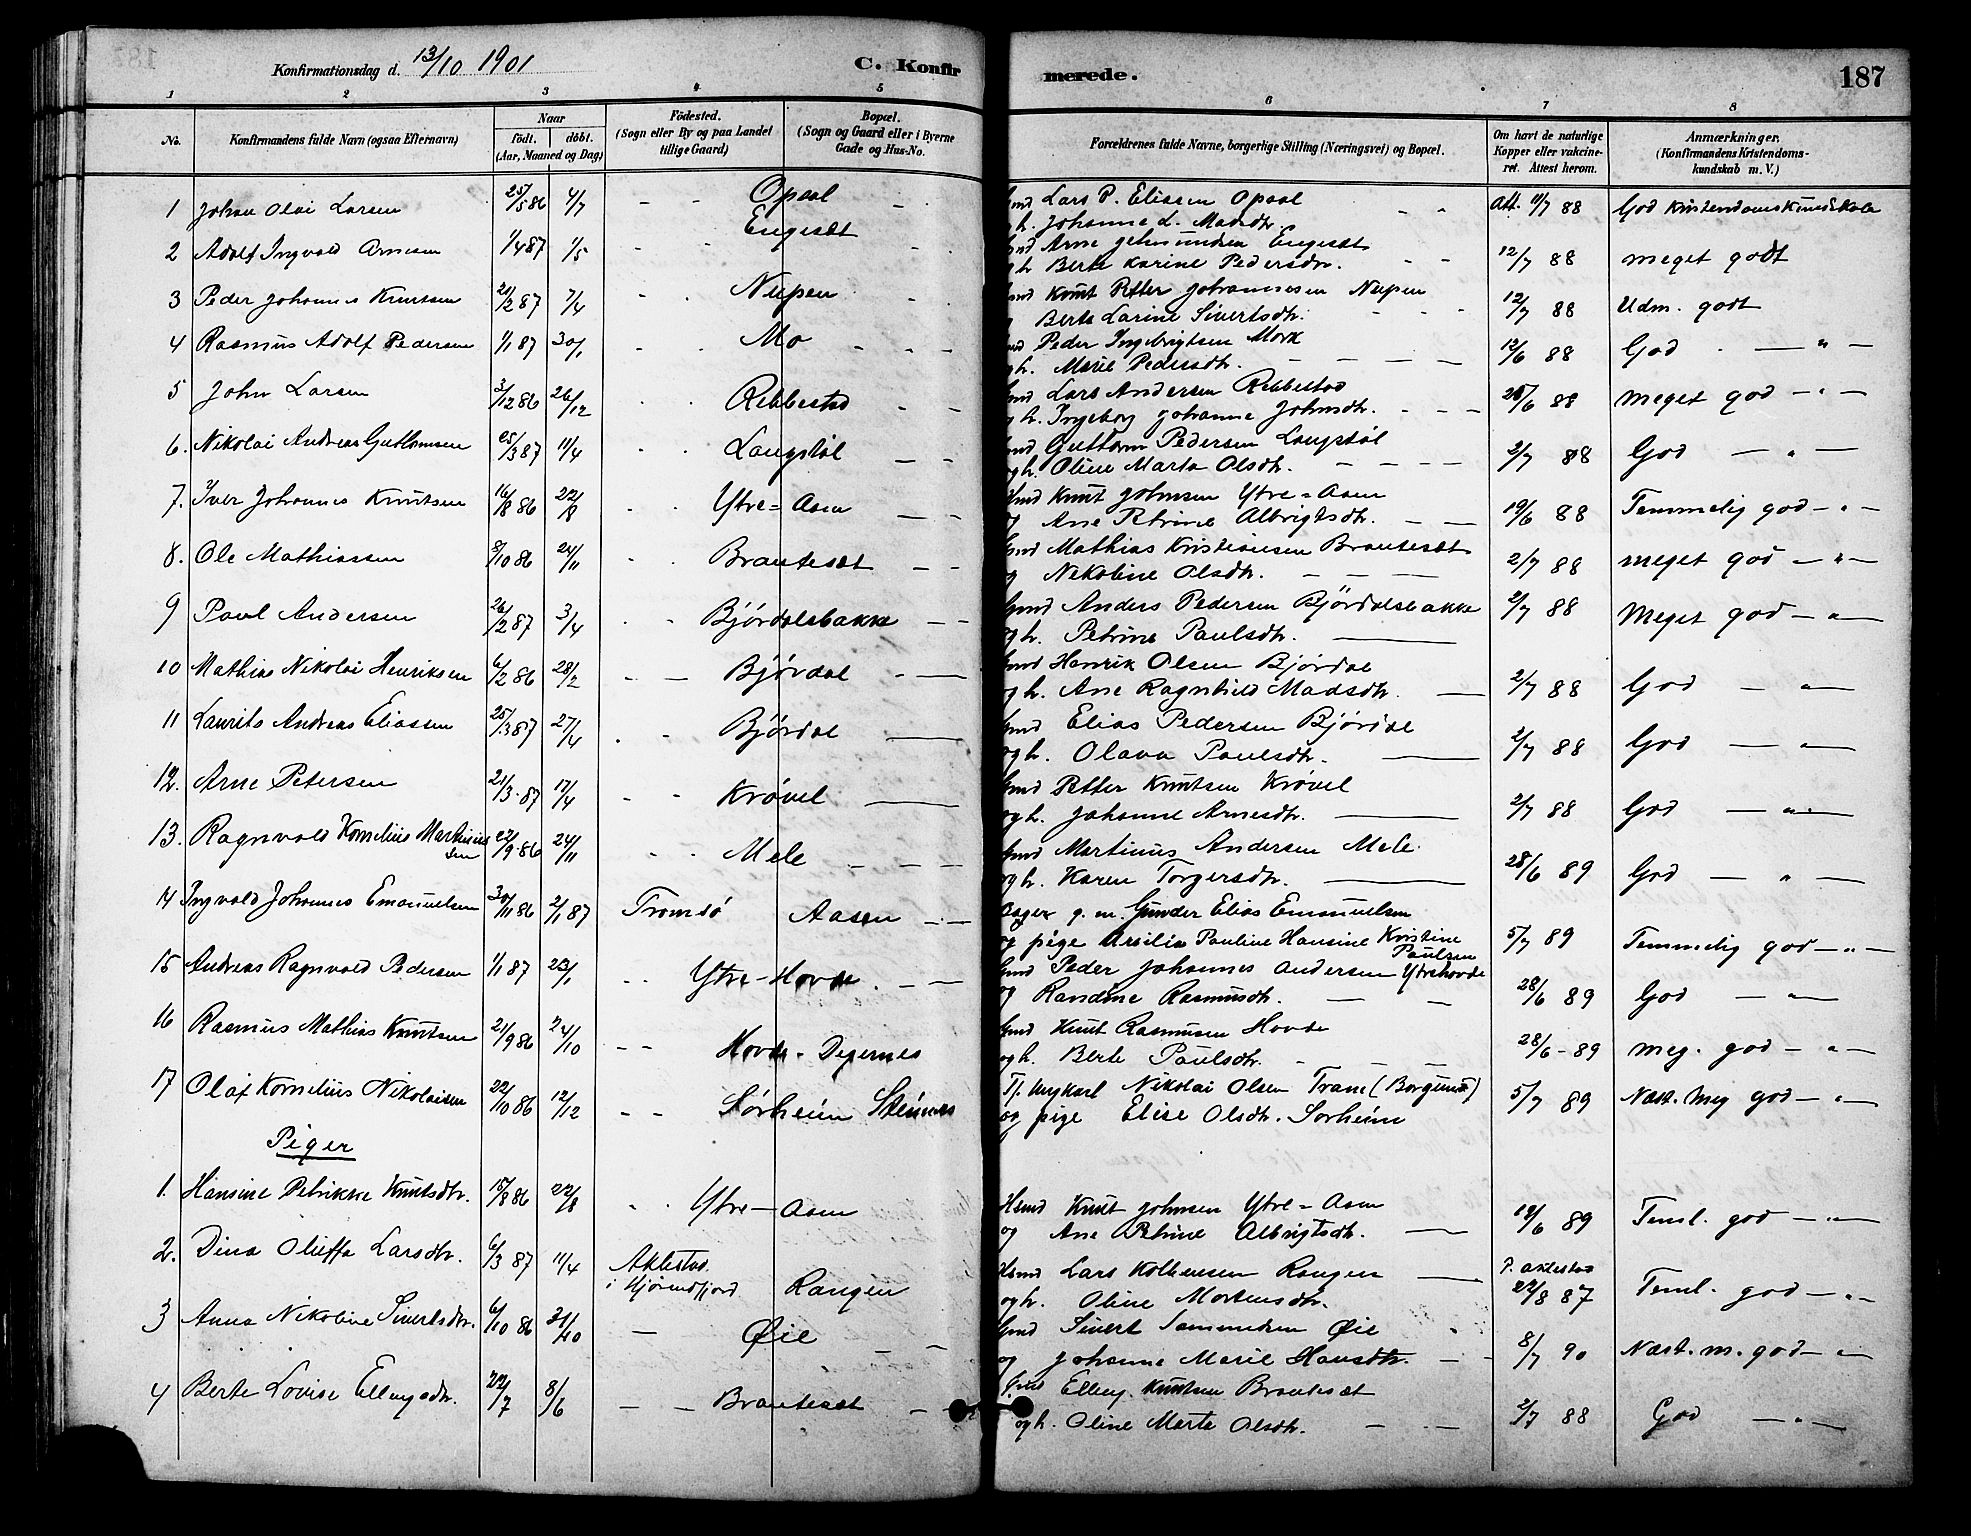 Konfirmationsdag d. 13/10 1901 C. Konfirmerede. 187
1 2 3 4 5 6 7 8
No. Konfirmandens fulde Navn (ogsaa Efternavn) Naar født. døbt. (Aar, Maaned og Dag) Fødested. (Sogn eller By og paa Landet tillige Gaard) Bopæl. (Sogn og Gaard eller i Byerne Gade og Hus-No. Forældrenes fulde Navne, borgerlige Stilling (Næringsvei) og Bopæl. Om havt de naturlige Kopper eller vakcineret. Attest herom. Anmærkninger. (Konfirmandens Kristendomskundskab m. V.)
1 Johan Olai Larsen 25/5 86 4/7 - - Opsal Gmd Lars P. Eliasen Opsal
ogh. Johanne L. Madsdtr. Att. 11/7 88 God Kristendomskundskab
2 Adolf Ingvald Arnesen 1/4 87 1/5 Engeset Gmd Arne Jetmundsen Engeset
ogh. Berte Karine Pedersdtr. 12/7 88 meget godt
3 Peder Johannes Knutsen 21/2 87 7/4 Nupen Gmd Knut Petter Johannesen Nupen
og Berte Larine Sivertsdtr. 12/7 88 Udm. godt
4 Rasmus Adolf Pedersen 1/1 87 30/1 Mo Gmd Peder Ingebrigtsen Mork
ogh. Marie Pedersdtr. 12/6 88 God - " -
5 John Larsen 3/12 86 26/12 Rebbestad Gmd Lars Andersen Rebbestad
ogh. Ingeborg Johanne Johnsdtr. 28/6 88 meget god - " -
6. Nikolai Andreas Guttormsen 25/3 87 11/4 Langstøl Gmd Guttorm Pedersen Langstøl
ogh. Oline Marta Olsdtr. 2/7 88 God - " -
7. Iver Johannes Knutsen 16/8 86 22/8 Ytre=Aam Hmd Knut Johnsen Ytre=Aam
og Ane Petrine Albrigtsdtr. 19/6 88 Temmelig god - " -
8. Ole Mathiassen 8/10 86 24/11 Brauteset Gmd Mathias Kristiansen Brauteset
og Nekoline Olsdtr. 2/7 88 meget god - " -
9 Paul Andersen 26/2 87 3/4 Bjørdalsbakke Gmd Anders Pedersen Bjørdalsbakke
ogh. Petrine Paulsdtr. 2/7 88 Meget god - " -
10 Mathias Nikolai Henriksen 6/2 86 28/2 Bjørdal Gmd Henrik Olsen Bjørdal
ogh. Ane Ragnhild Madsdtr. 2/7 88 God - " -
11 Laurits Andreas Eliassen 25/3 87 27/4 Bjørdal Gmd Elias Pedersen Bjørdal
ogh. Olava Paulsdtr. 2/7 88 God - " -
12. Arne Petersen 21/3 87 17/4 Krøvel Gmd Petter Knutsen Krøvel
ogh. Johanne Arnesdtr. 2/7 88 God - " -
13. Ragnvald Kornelius Martinussen 22/9 86 24/11 Mele Gmd Martinus Andersen Mele
ogh. Karen Torgersdtr. 28/6 89 God - " -
14 Ingvald Johannes Emanuelsen 30/11 86 2/1 87 Tromsø Aasen Bager g. m. Gunder Elias Emanuelsen
og pige Arsilia Pauline Hansine Kristine Paulsen 5/7 89 Temmelig god - " -
15 Andreas Ragnvald Pedersen 1/1 87 23/1 Ytre-Hovde Gmd Peder Johannes Andersen Ytrehovde
og Randine Rasmusdtr. 28/6 89 God - " -
16 Rasmus Mathias Knutsen 21/9 86 24/10 Hovde-Degernes Gmd Knut Rasmusen Hovde
ogh. Berte Paulsdtr. 28/6-89 meg. god - " -
17 Olaf Kornelius Nikolaisen 22/10 86 12/12 Sørheim Steinnes Nikolai Olsen Trane (Borgund)
og pige Elise Olsdtr. Sørheim 5/7 89 Næst. Meg god - " -
Piger
1. Hansine Petrikke Knutsdtr. 15/8 86 22/8 Ytre-Aam Hmd Knut Johnsen Ytre=Aam
og Ane Petrine Albrigtsdtr. 19/6 89 Teml. god - " -
2. Dina Olieffa Larsdtr. 6/3 87 11/4 Aklestad i Hjørundfjord Rangen Hmd Lars Kolbensen Rangen
ogh. Oline Mortensdtr. P. Aklestad 22/8 87 Teml. god - " -
3 Anna Nikoline Sivertsdtr. 6/10 86 31/10 - Øie Gmd Sivert Samundsen Øie
og Johanne Marie Hansdtr. 8/7 90 Næst. m. god - " -
4 Berte Lovise Ellingsdtr. 22/7 8/6 Brauteset Gmd Elling Knutsen Brauteset
ogh. Oline Marte Olsdtr. 2/7 88 God - " -